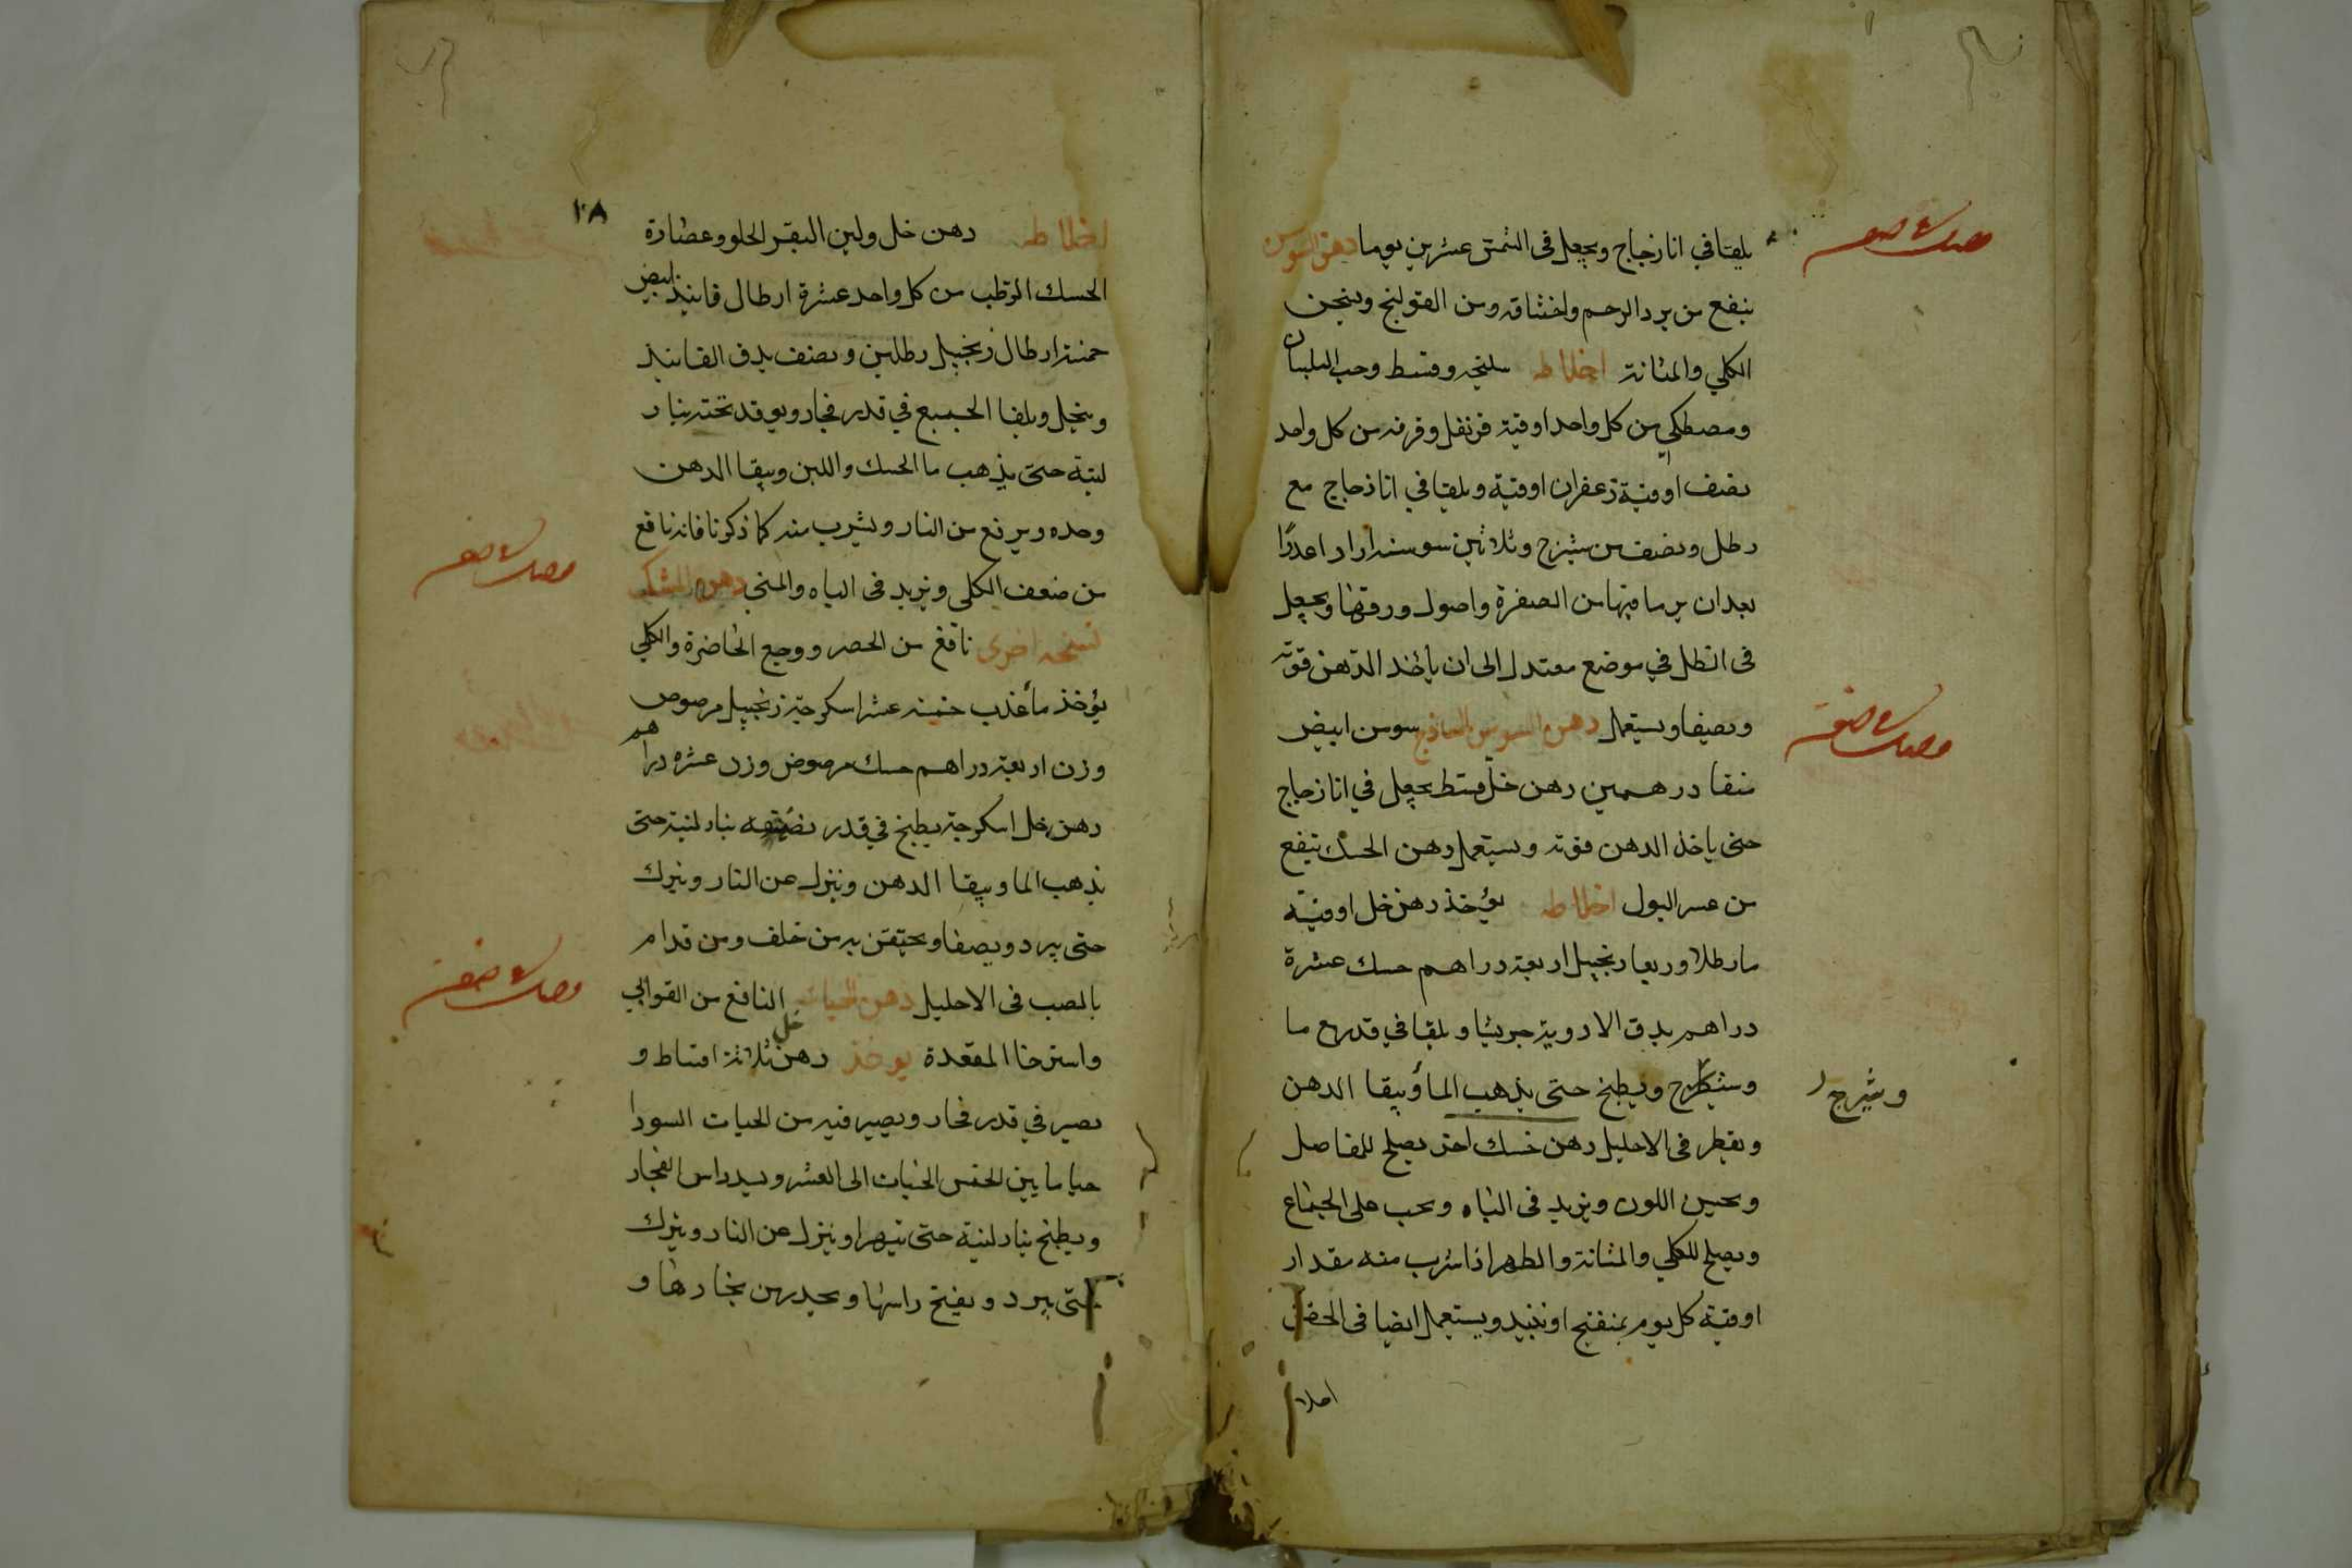 يلقا في انا زجاج ويجعل فى الشمس عشرين يوما دهن السوسن
ينفع من برد الرحم واختناقه ومن القولنج ويسخن
الكلي والمثانة اخلاطه سليخه وقسط وحب البلسان
ومصطكي من كل واحد اوقية قرنفل وقرفه من كل واحد
نصف اوقية زعفران اوقية ويلقا في انا زجاج مع
رطل ونصف من شيرج وثلاثين سوسنه عددًا
بعد ان يرما فيها من الصفرة واصول ورقها ويجعل
فى الظل في موضع معتدل الى ان ياخذ الدهن قوته
ويصفا ويستعمل دهن السوسن الساذج سوسن ابيض
منقا درهمين دهن خل قسط يجعل في انا زجاج
حتى ياخذ الدهن قوته ويستعمل دهن الحسك ينفع
من عسر البول اخلاطه يؤخذ دهن خل اوقية
ما رطلا وربعا زنجبيل اربعة دراهم حسك عشرة
دراهم يدق الادوية جريشا ويلقا في قدر مع ما
ويطبخ حتى يذهب الما ويبقا الدهن
وشيرج
ويقطر فى الاحليل دهن حسك اخر يصلح للمفاصل
ويحسن اللون ويزيد فى الباه ويحب على الجماع
ويصلح للكلي والمثانة والظهر اذا شرب منه مقدار
اوقية كل يوم او نبيذ ويستعمل ايضا فى الحقن
اخلا
٢٨
اخلاطه دهن خل ولبن البقر الحلو وعصارة
الحسك الرطب من كل واحد عشرة ارطال فانيذ ابيض
خمسة ارطال زنجبيل رطلين ونصف يدق الفانيذ
وينخل ويلقا الجميع في قدر فخار ويوقد تحته بنار
لينة حتى يذهب ما الحسك واللبن ويبقا الدهن
وحده ويرفع من النار ويشرب منه كما ذكرنا فانه نافع
من ضعف الكلى ويزيد فى الباه والمني دهن الحسك
نسخه اخرى نافع من الحصر ووجع الخاصرة والكلي
يؤخذ مأ عذب خمسة عشر اسكرجة زنجبيل مرصوص
وزن اربعة دراهم حسك مرضوض وزن عشره دراهم
دهن خل اسكرجة يطبخ في قدر نضيفه بنار لينة حتى
يذهب الما ويبقا الدهن وينزل عن النار ويترك
حتى يبرد ويصفا ويحتقن به من خلف ومن قدام
بالصب فى الاحليل دهن الحيات النافع من القوابي
واسترخا المقعدة يوخذ دهن خل ثلاثة اقساط و
يصير في قدر فخار ويصير فيه من الحيات السودا
حيا ما بين الخمس الحيات الى العشر ويسد راس الفخار
ويطبخ بنار لينة حتى يتهرا وينزل عن النار ويترك
حتى يبرد ويفتح راسها ويحدر من بخارها و